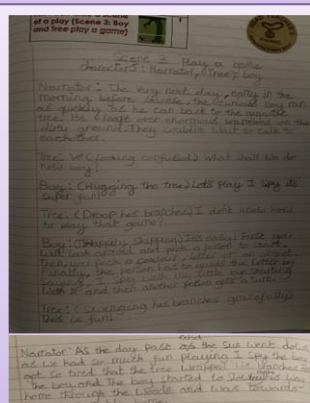 of a play (Scene 3: Boy
and tree play a game)
Scene 3 Play a game
characters: Narrator, Tree, boy
Narrator: The very next day, early in the
morning before sunrise, the curious boy ran
as quickly as he can back to the
tree. He leaps over enormous branches on the
dirty ground. They couldn't wait to talk to
each other.
Tree: (looking confused) What shall we do
now boy?
Boy: (Hugging the tree) Let's Play I spy its
super fun!
Tree: (Droop his branches) I don't know how
to play that game!
Boy: (Happily skipping) It's easy! First you
will look around and pick a person to start.
Then, you pick a letter or an object.
Finally, the person has to guess the
Saying, I spy with my little eye starting
with A and then another person gets a turn.
Tree: (Swinging his branches gracefully)
This is fun!
Narrator: As the day past the sun went down
as we had so much fun playing I spy the boy
got so tired that the tree wrapped his branches
the boy. And The boy started to his way
home through the woods and towards